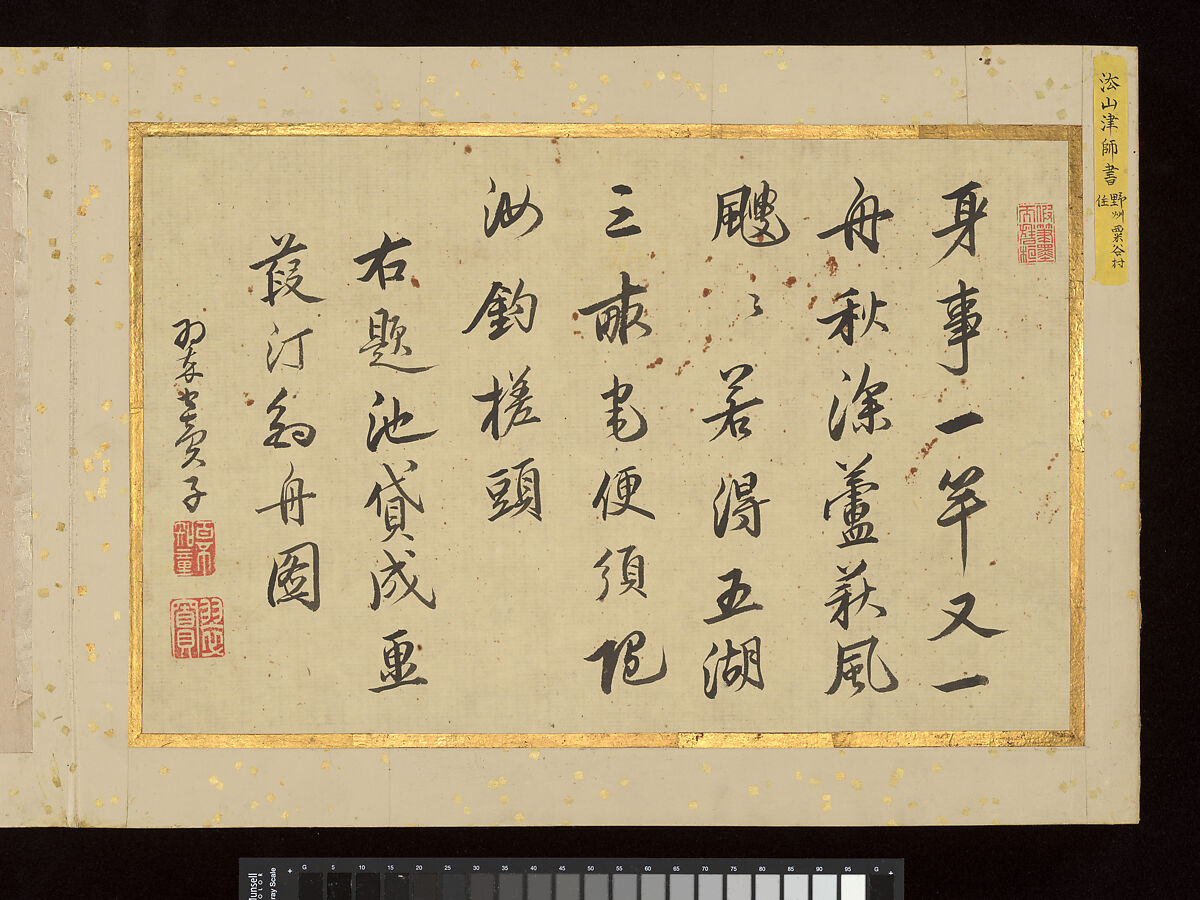 山津師書
住野州粟谷村
身事一竿又一
舟秋深蘆荻風
颼〻若得五湖
三畝宅便須隨
汝釣槎頭
右題池貸成画
葭汀舟圖
子
百不知童
G 5 10 15 20 25 30 35 40 45 50 55 60 65 70 75 80 85 90 95 G